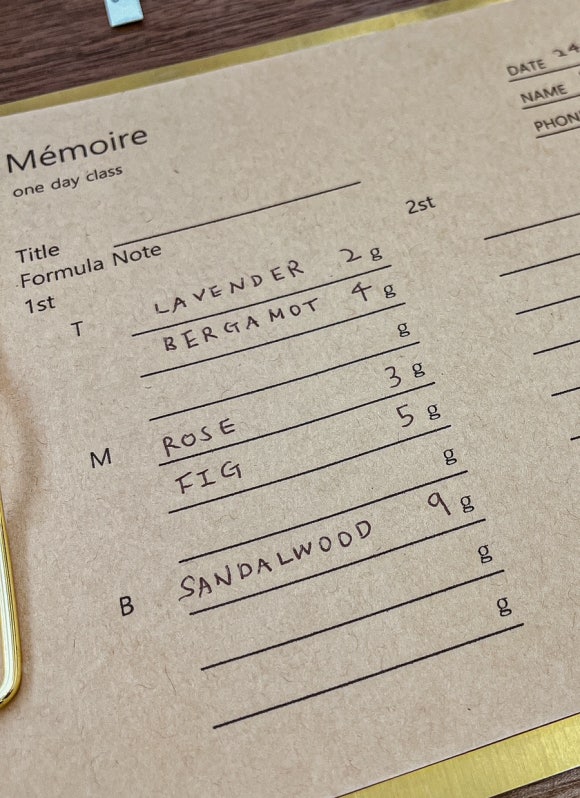 Mémoire
one day class
DATE 24
NAME
PHON
Title
Formula Note
1st
2st
T LAVENDER 2 g
BERGAMOT 4 g
g
M ROSE 3 g
FIG 5 g
g
B SANDALWOOD 9 g
g
g